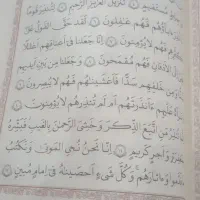 مُّسْتَقِيمٍ ۝ تَنزِيلَ الْعَزِيزِ الرَّحِيمِ ۝
فَهُمْ غَافِلُونَ ۝ لَقَدْ حَقَّ الْقَوْلُ عَلَىٰ
فَهُمْ لَا يُؤْمِنُونَ ۝ إِنَّا جَعَلْنَا فِي أَعْنَاقِهِمْ أَغْلَالًا
إِلَى الْأَذْقَانِ فَهُم مُّقْمَحُونَ ۝ وَجَعَلْنَا مِن بَيْنِ أَيْدِيهِمْ
وَمِنْ خَلْفِهِمْ سَدًّا فَأَغْشَيْنَاهُمْ فَهُمْ لَا يُبْصِرُونَ ۝
ءَأَنذَرْتَهُمْ أَمْ لَمْ تُنذِرْهُمْ لَا يُؤْمِنُونَ ۝
مَنِ اتَّبَعَ الذِّكْرَ وَخَشِيَ الرَّحْمَٰنَ بِالْغَيْبِ فَبَشِّرْهُ
وَأَجْرٍ كَرِيمٍ ۝ إِنَّا نَحْنُ نُحْيِ الْمَوْتَىٰ وَنَكْتُبُ
وَءَاثَارَهُمْ وَكُلَّ شَيْءٍ أَحْصَيْنَاهُ فِي إِمَامٍ مُّبِينٍ ۝